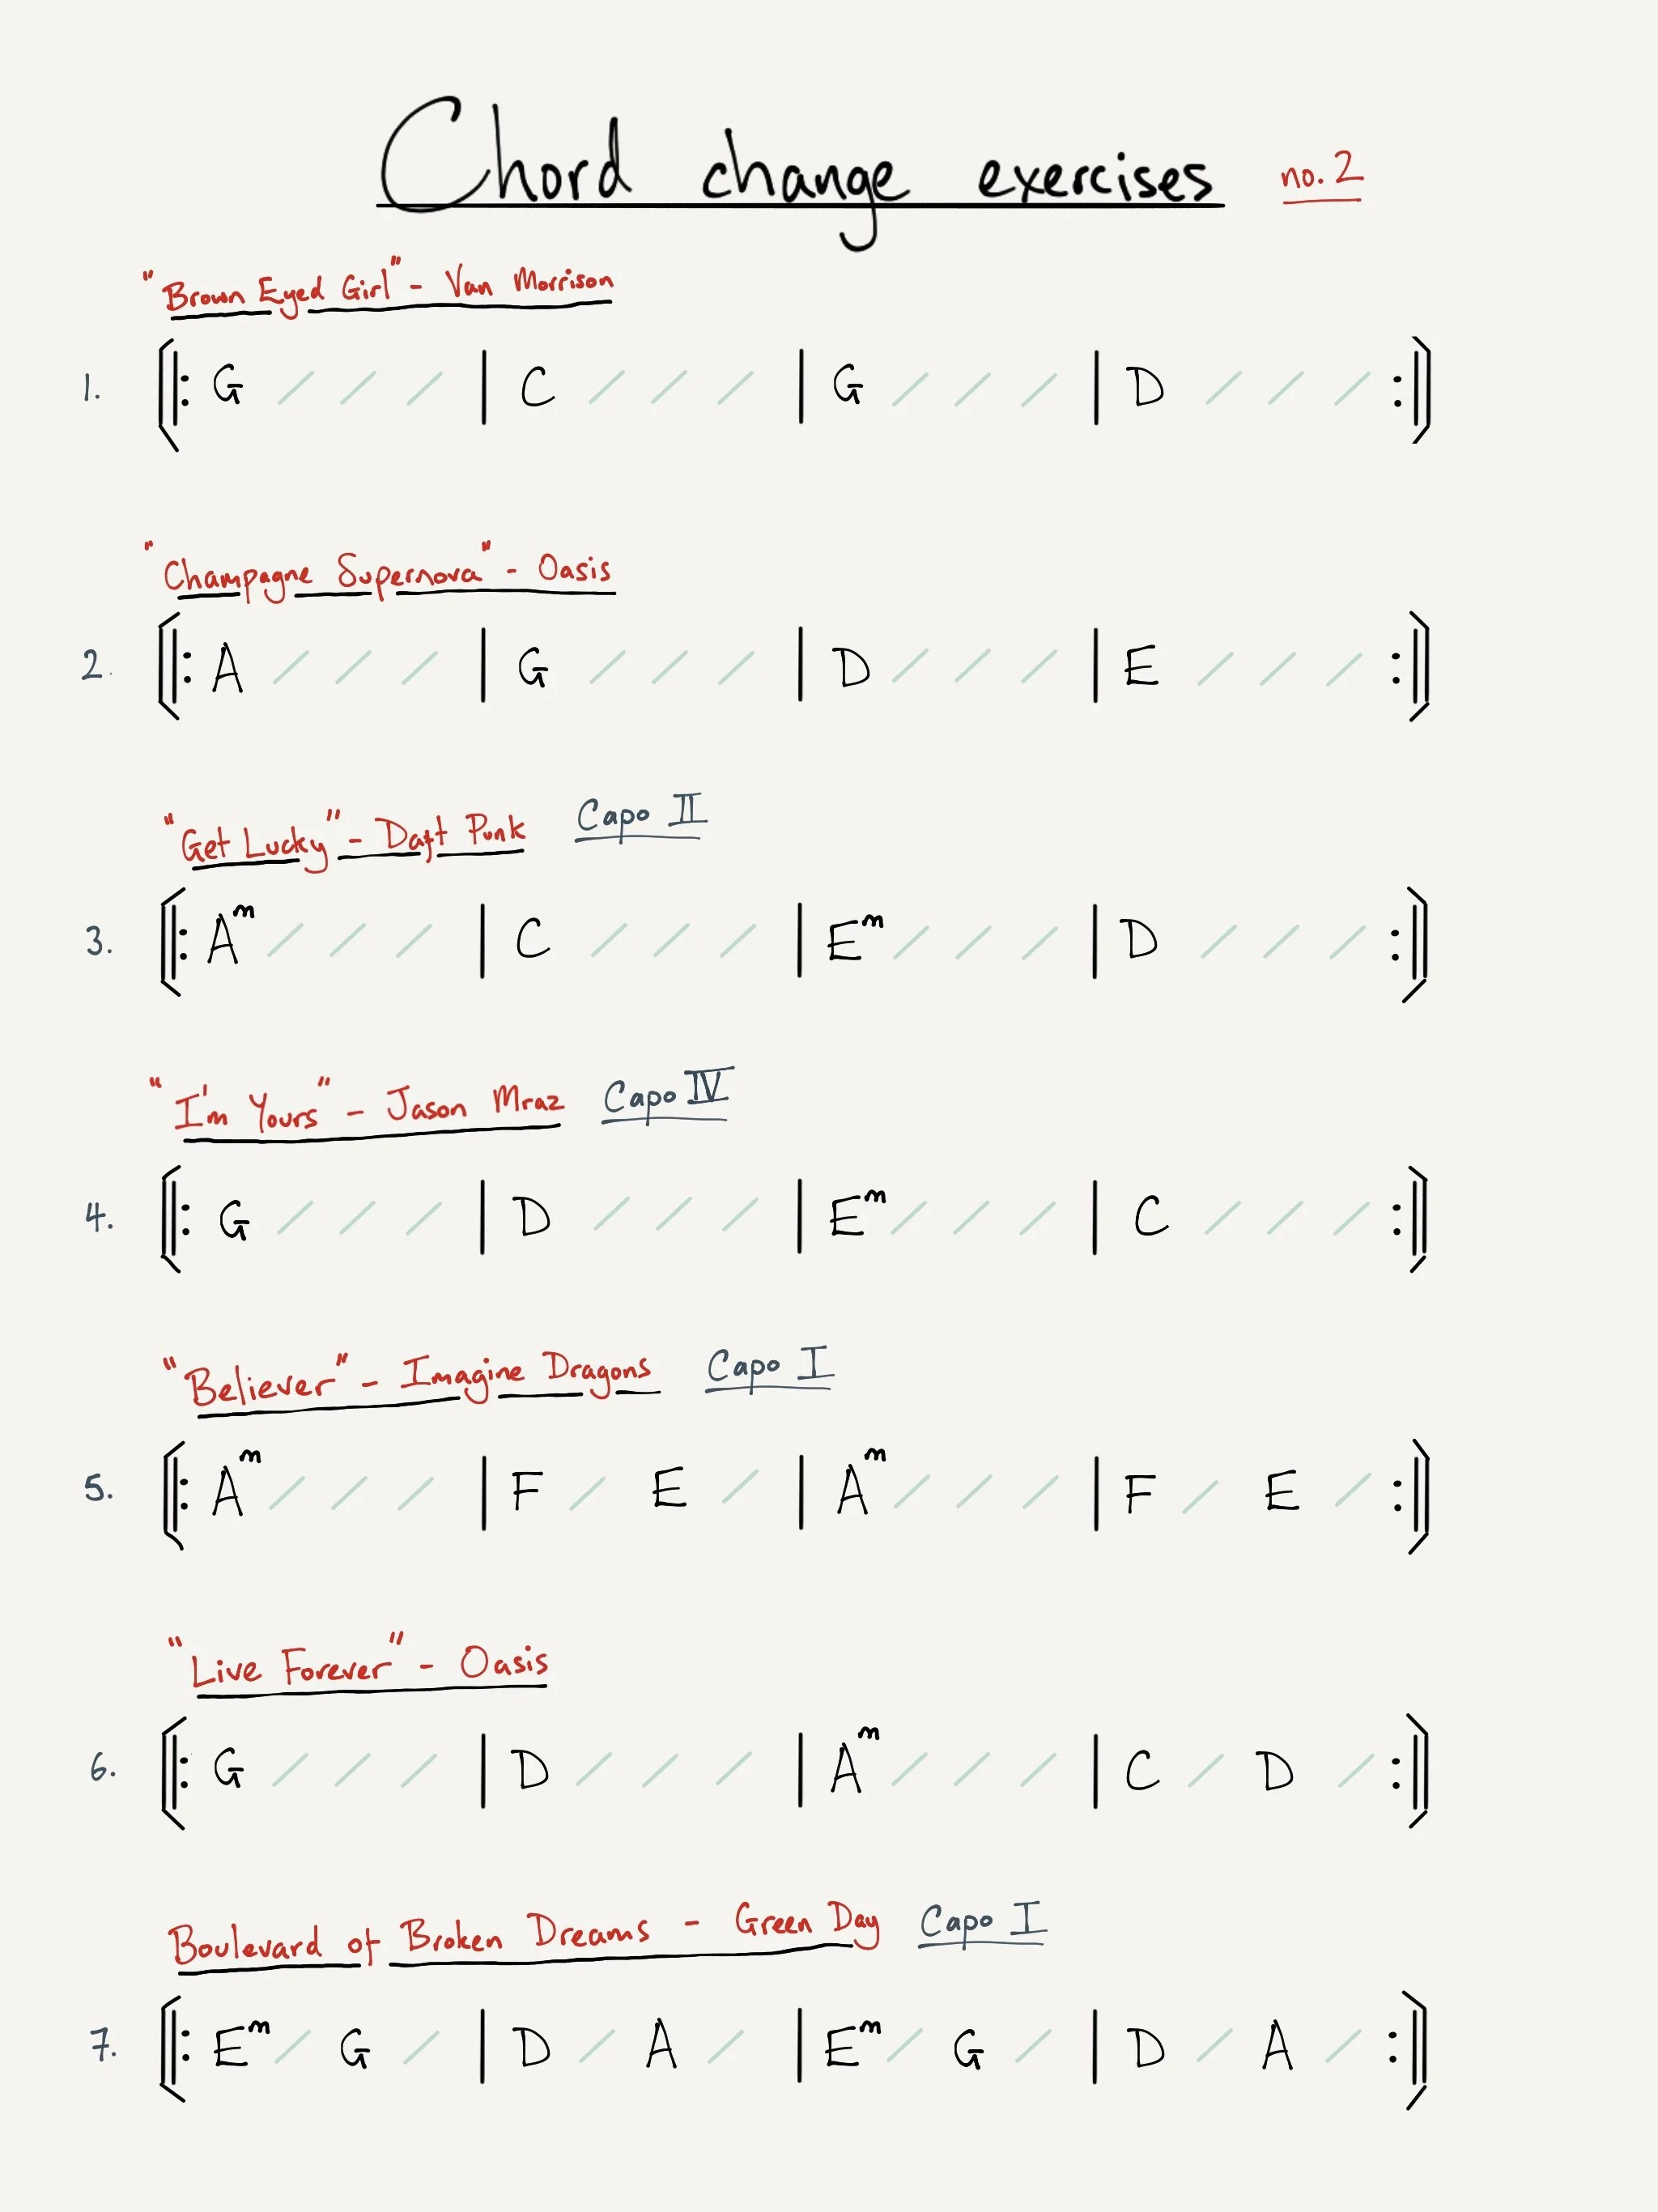 Chord change exercises no. 2
"Brown Eyed Girl" - Van Morrison
1. G / / / | C / / / | G / / / | D / / / :
"Champagne Supernova" - Oasis
2. A / / / | G / / / | D / / / | E / / / :
"Get Lucky" - Daft Punk Capo II
3. Am / / / | C / / / | Em / / / | D / / / :
"I'm Yours" - Jason Mraz Capo IV
4. G / / / | D / / / | Em / / / | C / / / :
"Believer" - Imagine Dragons Capo I
5. Am / / / | F / E / | Am / / / | F / E / :
"Live Forever" - Oasis
6. G / / / | D / / / | Am / / / | C / D / :
Boulevard of Broken Dreams - Green Day Capo I
7. Em / G / | D / A / | Em / G / | D / A / :